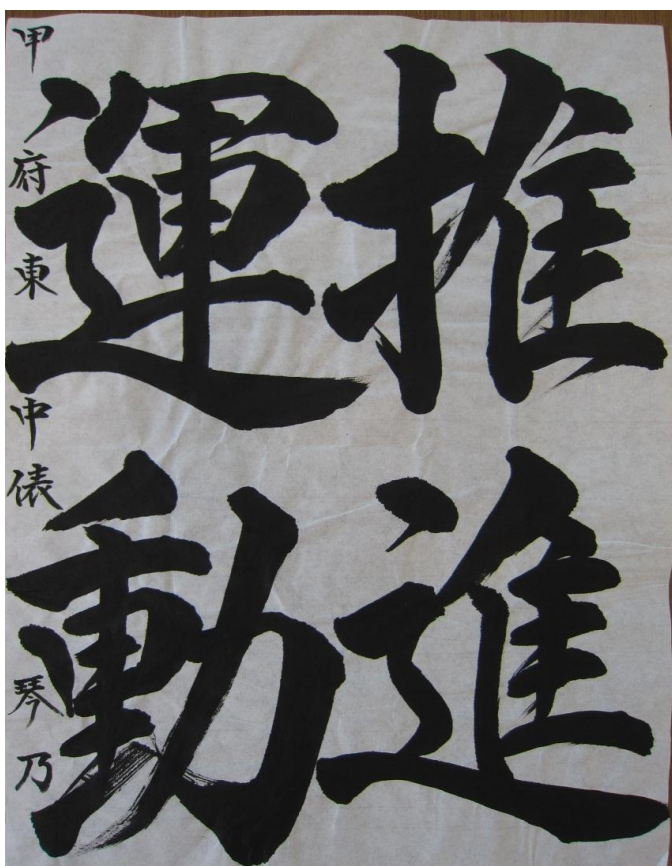 推進
運動
甲府東中俵 琴乃